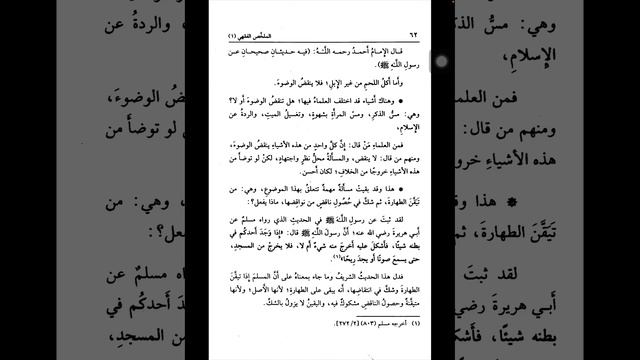 ٦٢
الملخص الفقهي (١)
قال الإمامُ أحمدُ رحمه اللَّهُ: (فيه حديثانِ صحيحانِ عن
رسولِ اللَّهِ ﷺ).
وأما أكلُ اللحمِ من غيرِ الإبلِ؛ فلا ينقضُ الوضوءَ.
● وهناك أشياء قد اختلف العلماءُ فيها؛ هل تنقضُ الوضوءَ أو لا؟
وهي: مسُّ الذكرِ، ومسُّ المرأةِ بشهوةٍ، وتغسيلُ الميتِ، والردةُ عن
الإسلامِ.
فمن العلماءِ مَنْ قال: إنَّ كلَّ واحدٍ من هذه الأشياءِ ينقضُ الوضوءَ،
ومنهم من قال: لا ينقض، والمسألةُ محلُّ نظرٍ واجتهادٍ، لكنْ لو توضأَ من
هذه الأشياءِ خروجًا من الخلافِ؛ لكان أحسن.
● هذا وقد بقيتْ مسألةٌ مهمةٌ تتعلقُ بهذا الموضوعِ، وهي: من
تَيَقَّنَ الطهارةَ، ثم شكَّ في حُصُولِ ناقضٍ من نواقضِها، ماذا يفعل؟:
لقد ثبتَ عن رسولِ اللَّهِ ﷺ في الحديثِ الذي رواه مسلمٌ عن
أبي هريرةَ رضي الله عنه؛ أنَّ رسولَ اللَّهِ ﷺ قال: «إِذَا وَجَدَ أحدكُم في
بطنِه شيئًا، فأشكلَ عليه أخرجَ منه شيءٌ أم لا، فلا يخرجْ من المسجدِ،
حتى يسمعَ صوتًا أو يجدَ رِيحًا»(١).
فدل هذا الحديثُ الشريفُ وما جاء بمعناهُ على أنَّ المسلمَ إذا تيقَّنَ
الطهارةَ وشكَّ في انتقاضِها، أنه يبقى على الطهارةِ؛ لأنها الأصلُ؛ ولأنها
متيقَّنةٌ وحصولُ الناقضِ مشكوكٌ فيه، واليقينُ لا يزولُ بالشكِّ.
(١) أخرجه مسلم (٨٠٣) [٢/ ٢٧٢].